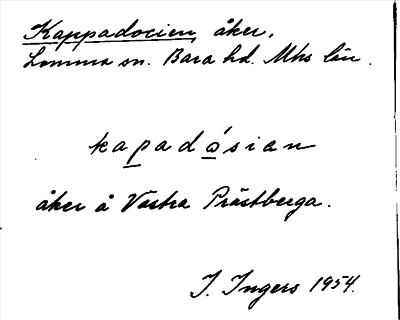 Kappadocien, åker,
Lomma sn. Bara hd. Mhs län.
kapadǻsian
åker å Västra Prästberga.
I. Ingers 1954.